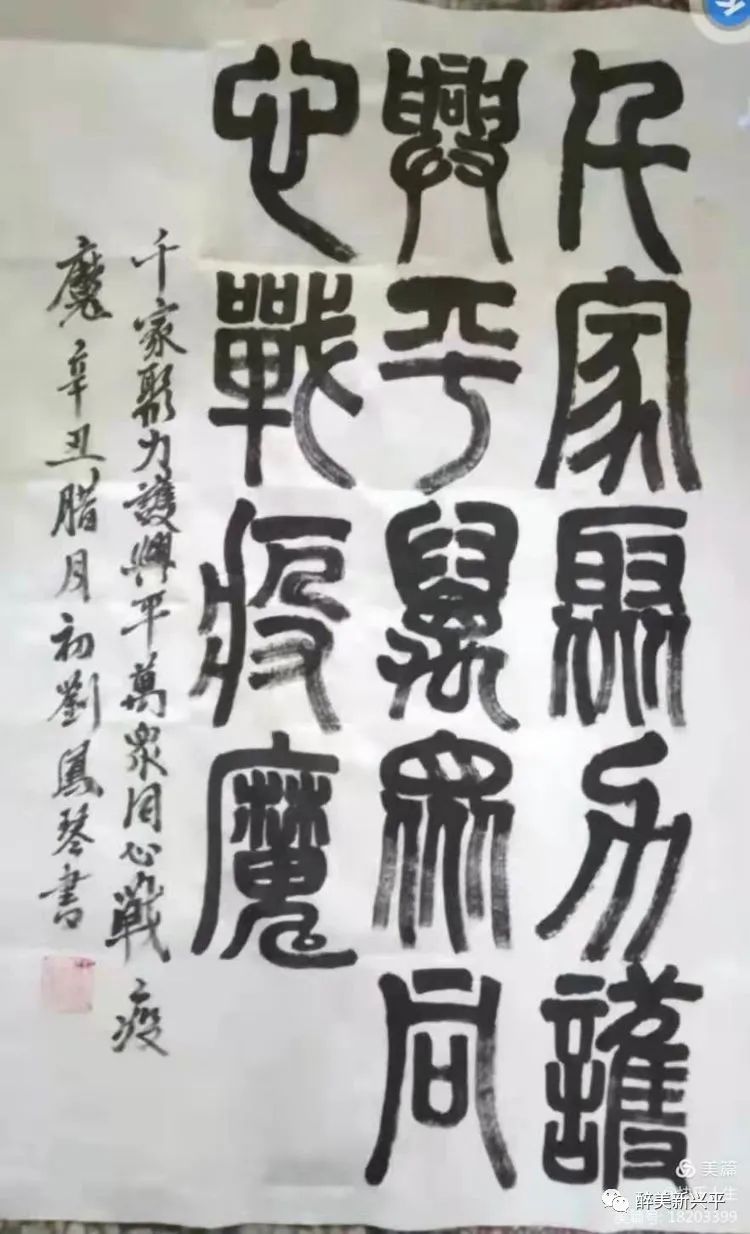 千家聚力護
興平萬眾同
心戰疫魔
千家聚力護興平萬眾同心戰疫
魔辛丑腊月初劉鳳琴書
美篇
醉美新兴平
美篇号: 18203399